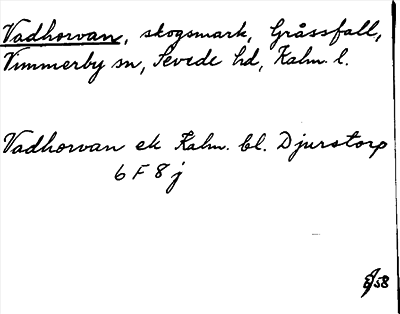 Vadhorvan, skogsmark, Gråssfall,
Vimmerby sn, Sevede hd, Kalm. l.
Vadhorvan ek Kalm. bl. Djurstorp
6 F 8 j
58